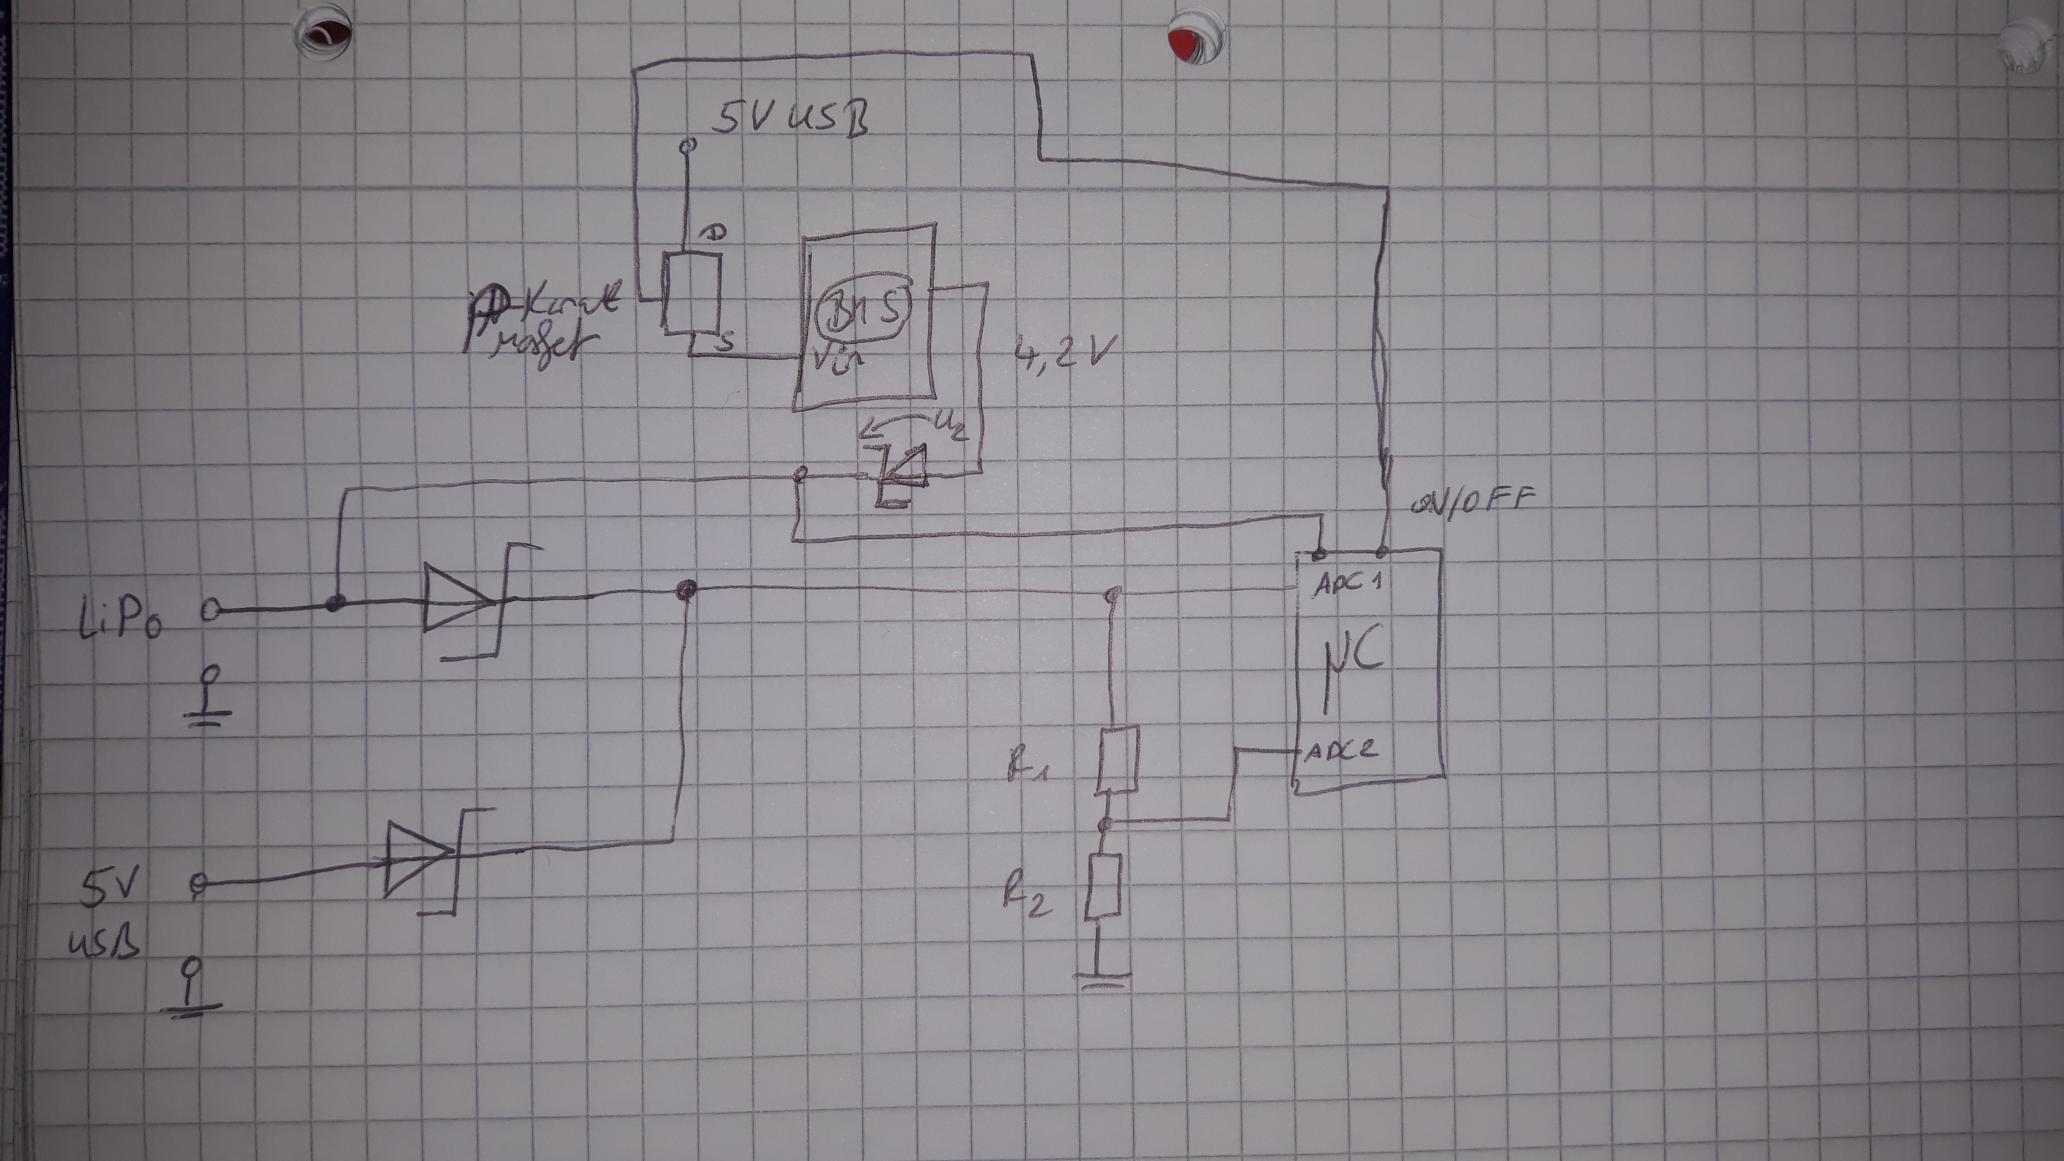 5V USB
D
P-Kanal
Mosfet
S
BMS
Vin
4,2V
Uz
ON/OFF
LiPo
ADC1
µC
R1
ADC2
5V
USB
R2